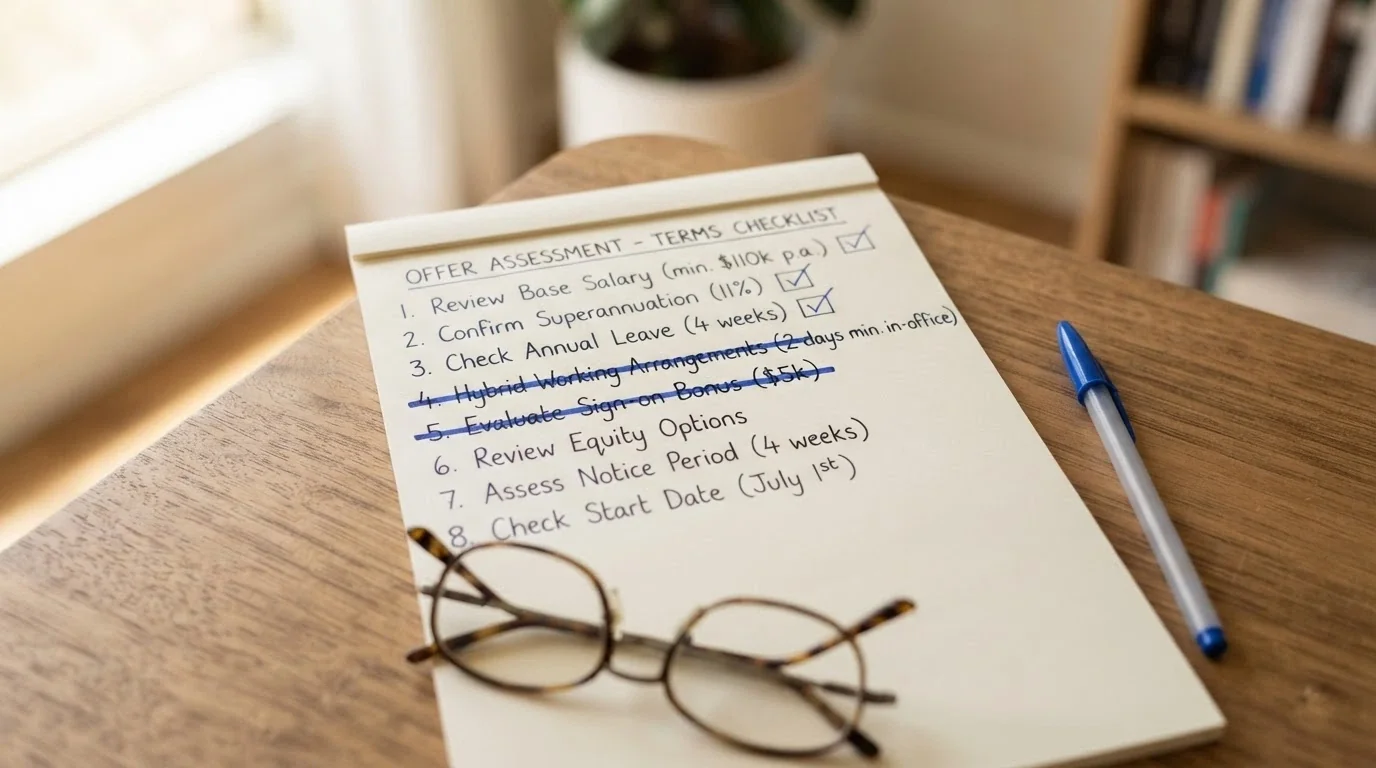 OFFER ASSESSMENT – TERMS CHECKLIST
1. Review Base Salary (min. $110k p.a.) ☑
2. Confirm Superannuation (11%) ☑
3. Check Annual Leave (4 weeks) ☑
4. Hybrid Working Arrangements (2 days min. in-office)
5. Evaluate Sign-on Bonus ($5k)
6. Review Equity Options
7. Assess Notice Period (4 weeks)
8. Check Start Date (July 1st)